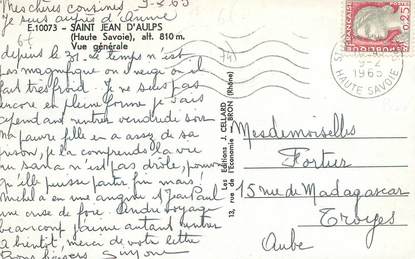 Mes chères cousines 9-2-63
Je suis auprès d'
E.10073 - SAINT JEAN D'AULPS
(Haute Savoie), alt. 810 m.
Vue générale
depuis le 31. Le temps n'est
pas magnifique on neige ou il
fait très froid. Je ne suis pas
en pleine forme, je vais
cependant rentrer vendredi soir
ma pauvre fille en a assez de sa
je la comprends la vie
au sana n'est pas drôle, pourvu
qu'elle puisse partir fin mai!
Michel a eu une angine et Jean Paul
une crise de foie. André voyage
beaucoup j'aime autant rentrer
A bientôt, merci de votre lettre
Bons baisers Simone
Les Editions J. CELLARD
13, rue de l'Economie - BRON (Rhône)
0,25
HAUTE SAVOIE
Mesdemoiselles
Fortier
15 rue de Madagascar
Troyes
Aube